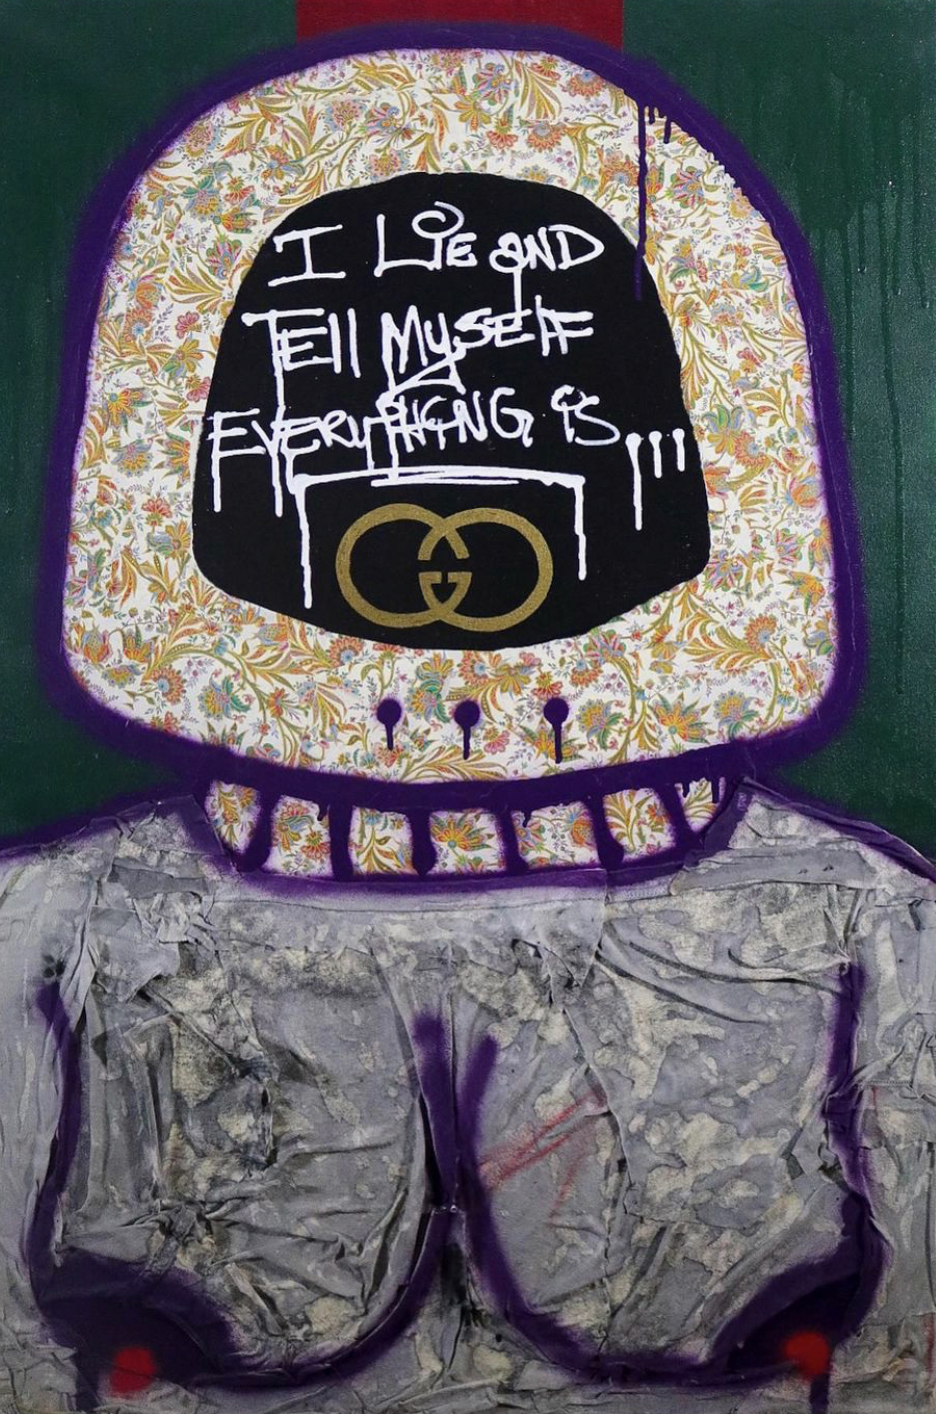 I Lie AND
TEll MySElF
EVERyTHiNG iS,,,
GG